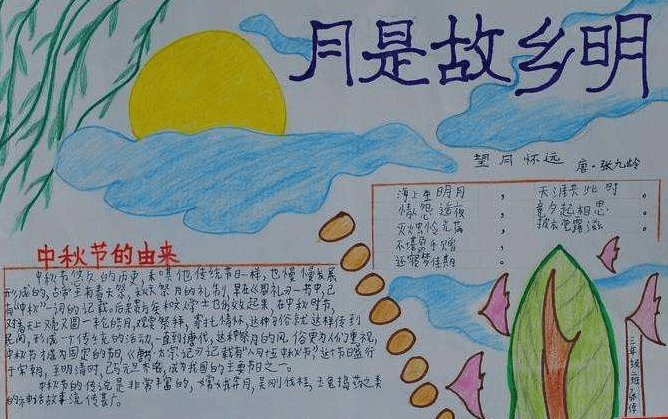 月是故乡明
望月怀远 唐·张九龄
海上生明月， 天涯共此时。
情怨遥夜， 竟夕起相思。
灭烛怜光满， 披衣觉露滋。
不堪盈手赠，
还寝梦佳期。
中秋节的由来
中秋节悠久的历史，和其他传统节日一样，也慢慢发展
形成的，古帝王有春天祭日，秋天祭月的礼制，早在《周礼》一书中，已
有“中秋”一词的记载。后来贵族和文人学士也仿效起来，在中秋时节，
对着天上又亮又圆一轮皓月，观赏祭拜，寄托情怀，这种习俗就这样传到
民间，形成一个传统的活动，一直到唐代，这种祭月的风俗更为人们重视，
中秋节才成为固定的节日，《唐书·太宗记》记载有“八月十五中秋节”，这个节日盛行
于宋朝，至明清时，已与元旦齐名，成为我国的主要节日之一。
中秋节的传说是非常丰富的，嫦娥奔月，吴刚伐桂，玉兔捣药之类
的神话故事流传甚广。
三年级二班